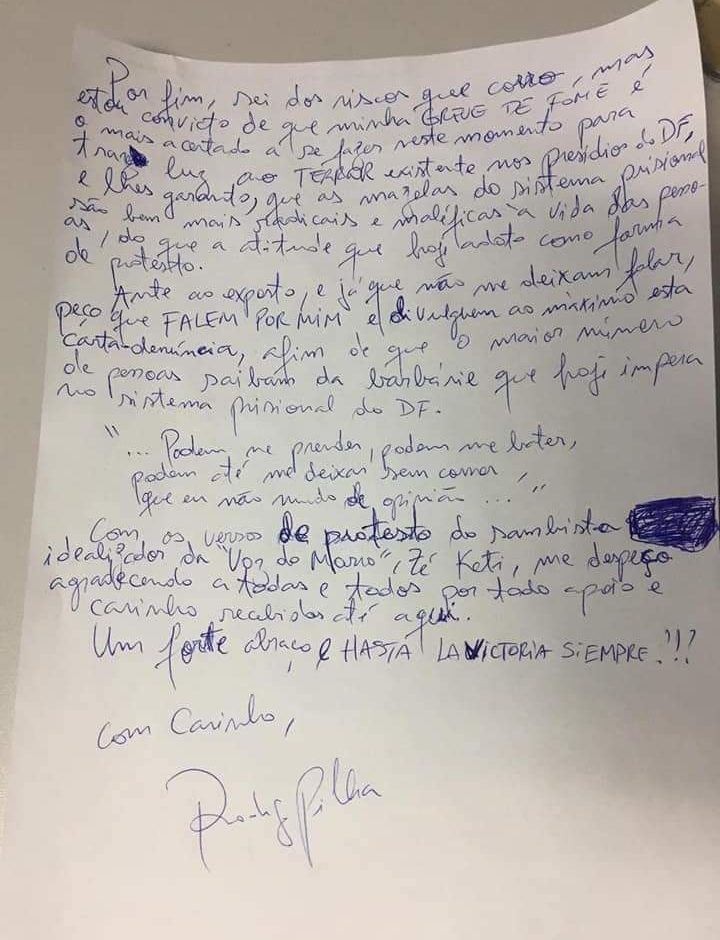 Por fim, sei dos riscos que corro, mas
estou convicto de que minha GREVE DE FOME é
o mais acertado a se fazer neste momento para
trazer luz ao TERROR existente nos presídios do DF,
e lhes garanto, que as mazelas do sistema prisional
são bem mais radicais e maléficas à vida das pesso-
as, do que a atitude que hoje adoto como forma
de protesto.
Ante ao exposto, e já que não me deixam falar,
peço que FALEM POR MIM e divulguem ao máximo esta
carta-denúncia, afim de que o maior número
de pessoas saibam da barbárie que hoje impera
no sistema prisional do DF.
"... Podem me prender, podem me bater,
podem até me deixar sem comer,
que eu não mudo de opinião ..."
Com os versos de protesto do sambista
idealizador da "Voz do Morro", Zé Keti, me despeço
agradecendo a todas e todos por todo apoio e
carinho recebidos até aqui.
Um forte abraço e HASTA LA VICTORIA SIEMPRE!!!
Com Carinho,
Rodrigo Pilha